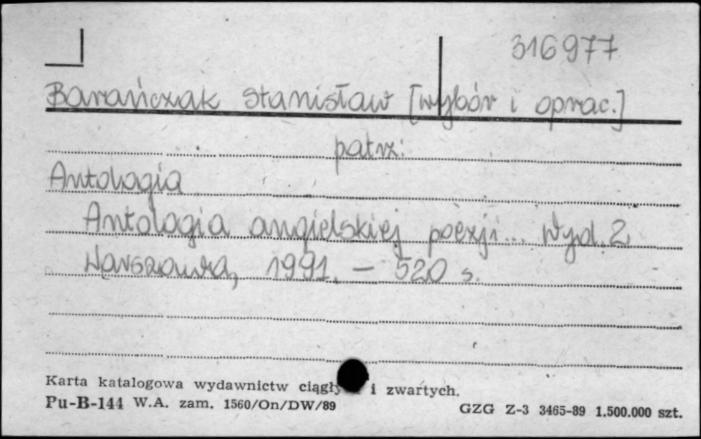 316977
Barańczak Stanisław [wybór i oprac.]
patrz:
Antologia
Antologia angielskiej poezji... Wyd. 2
Warszawa, 1991. – 520 s.
Karta katalogowa wydawnictw i zwartych.
Pu-B-144 W.A. zam. 1560/On/DW/89
GZG Z-3 3465-89 1.500.000 szt.